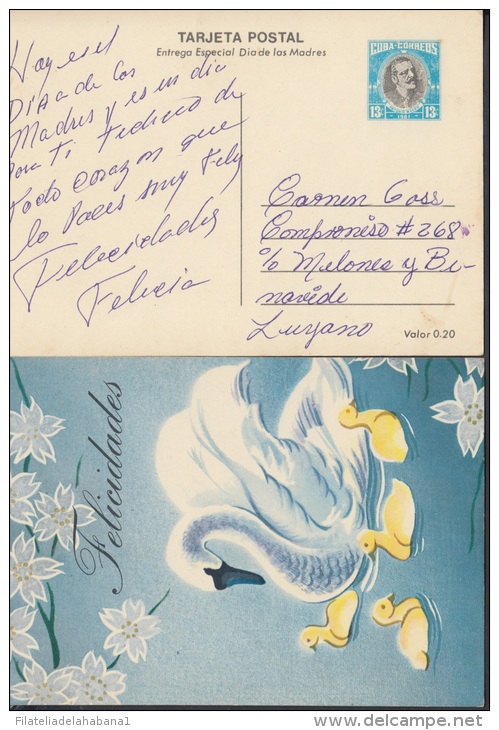 TARJETA POSTAL
Entrega Especial Dia de las Madres
CUBA·CORREOS
13¢ 1981 13¢
Hoy es el
DIA de Las
Madres y es un dia
para Ti Tedeceo de
todo corazon que
lo Pases muy Fely
Felicidades
Felicia
Carmen Goss
Compromiso # 268
% Melones y Be-
navide
Luyano
Valor 0.20
Felicidades
Filateliadelahabana1